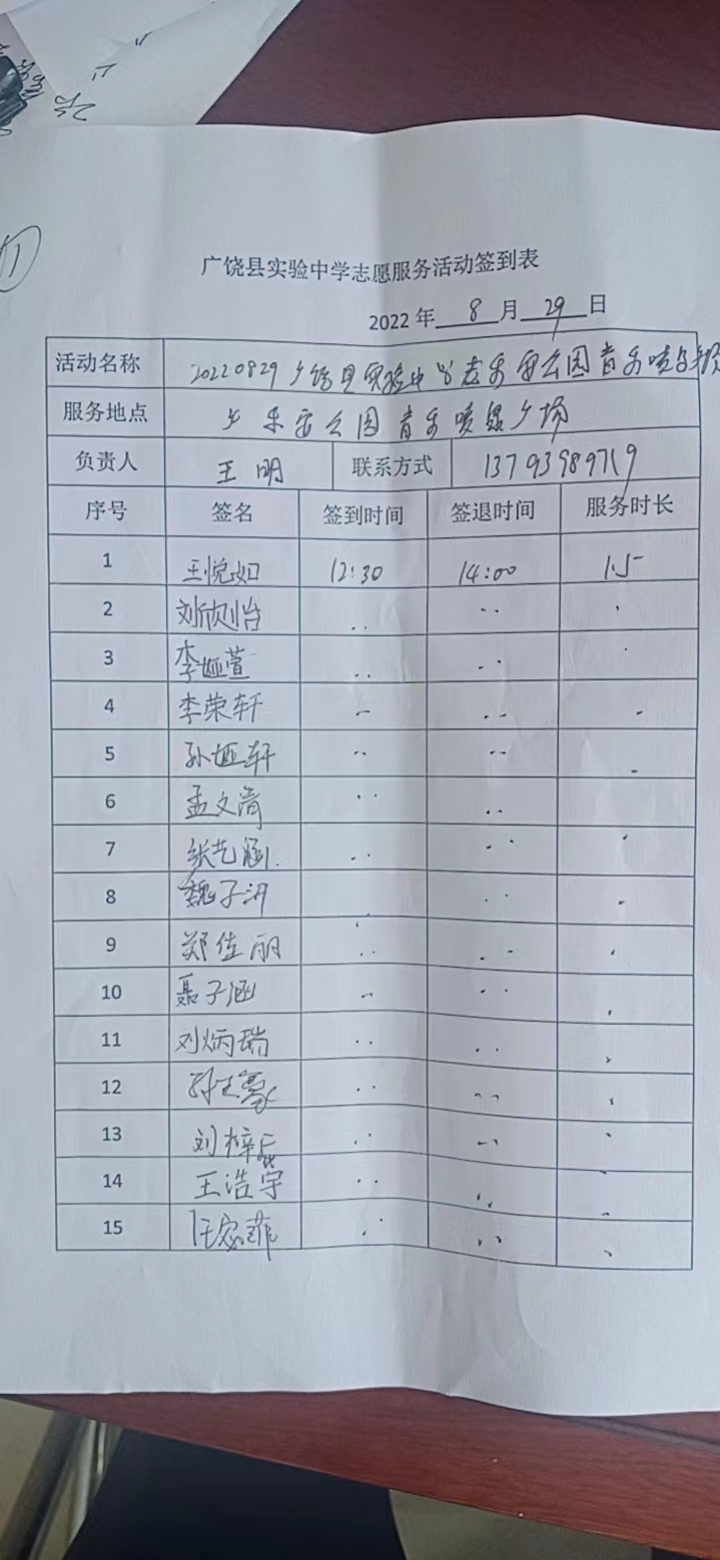 1
广饶县实验中学志愿服务活动签到表
2022年 8 月 29 日
活动名称 20220829广饶县实验中学 公园音乐喷
服务地点 乐安公园音乐喷泉广场
负责人 王明 联系方式 13793989719
序号 签名 签到时间 签退时间 服务时长
1 王悦如 12:30 14:00 1.5
2 刘欣怡 ‥ ‥ ·
3 李娅萱 ‥ ‥ ·
4 李荣轩 ‥ ‥ ·
5 孙娅轩 ‥ ‥ ·
6 孟文 ‥ ‥ ·
7 张艺涵 ‥ ‥ ·
8 魏子 ‥ ·
9 郑佳丽 ‥ ‥ ·
10 聂子涵 ‥ ‥ ·
11 刘炳瑞 ‥ ‥ ·
12 ‥ ‥ ·
13 刘梓辰 ‥ ‥ ·
14 王浩宇 ‥ ‥ ·
15 菲 ‥ ‥ ·